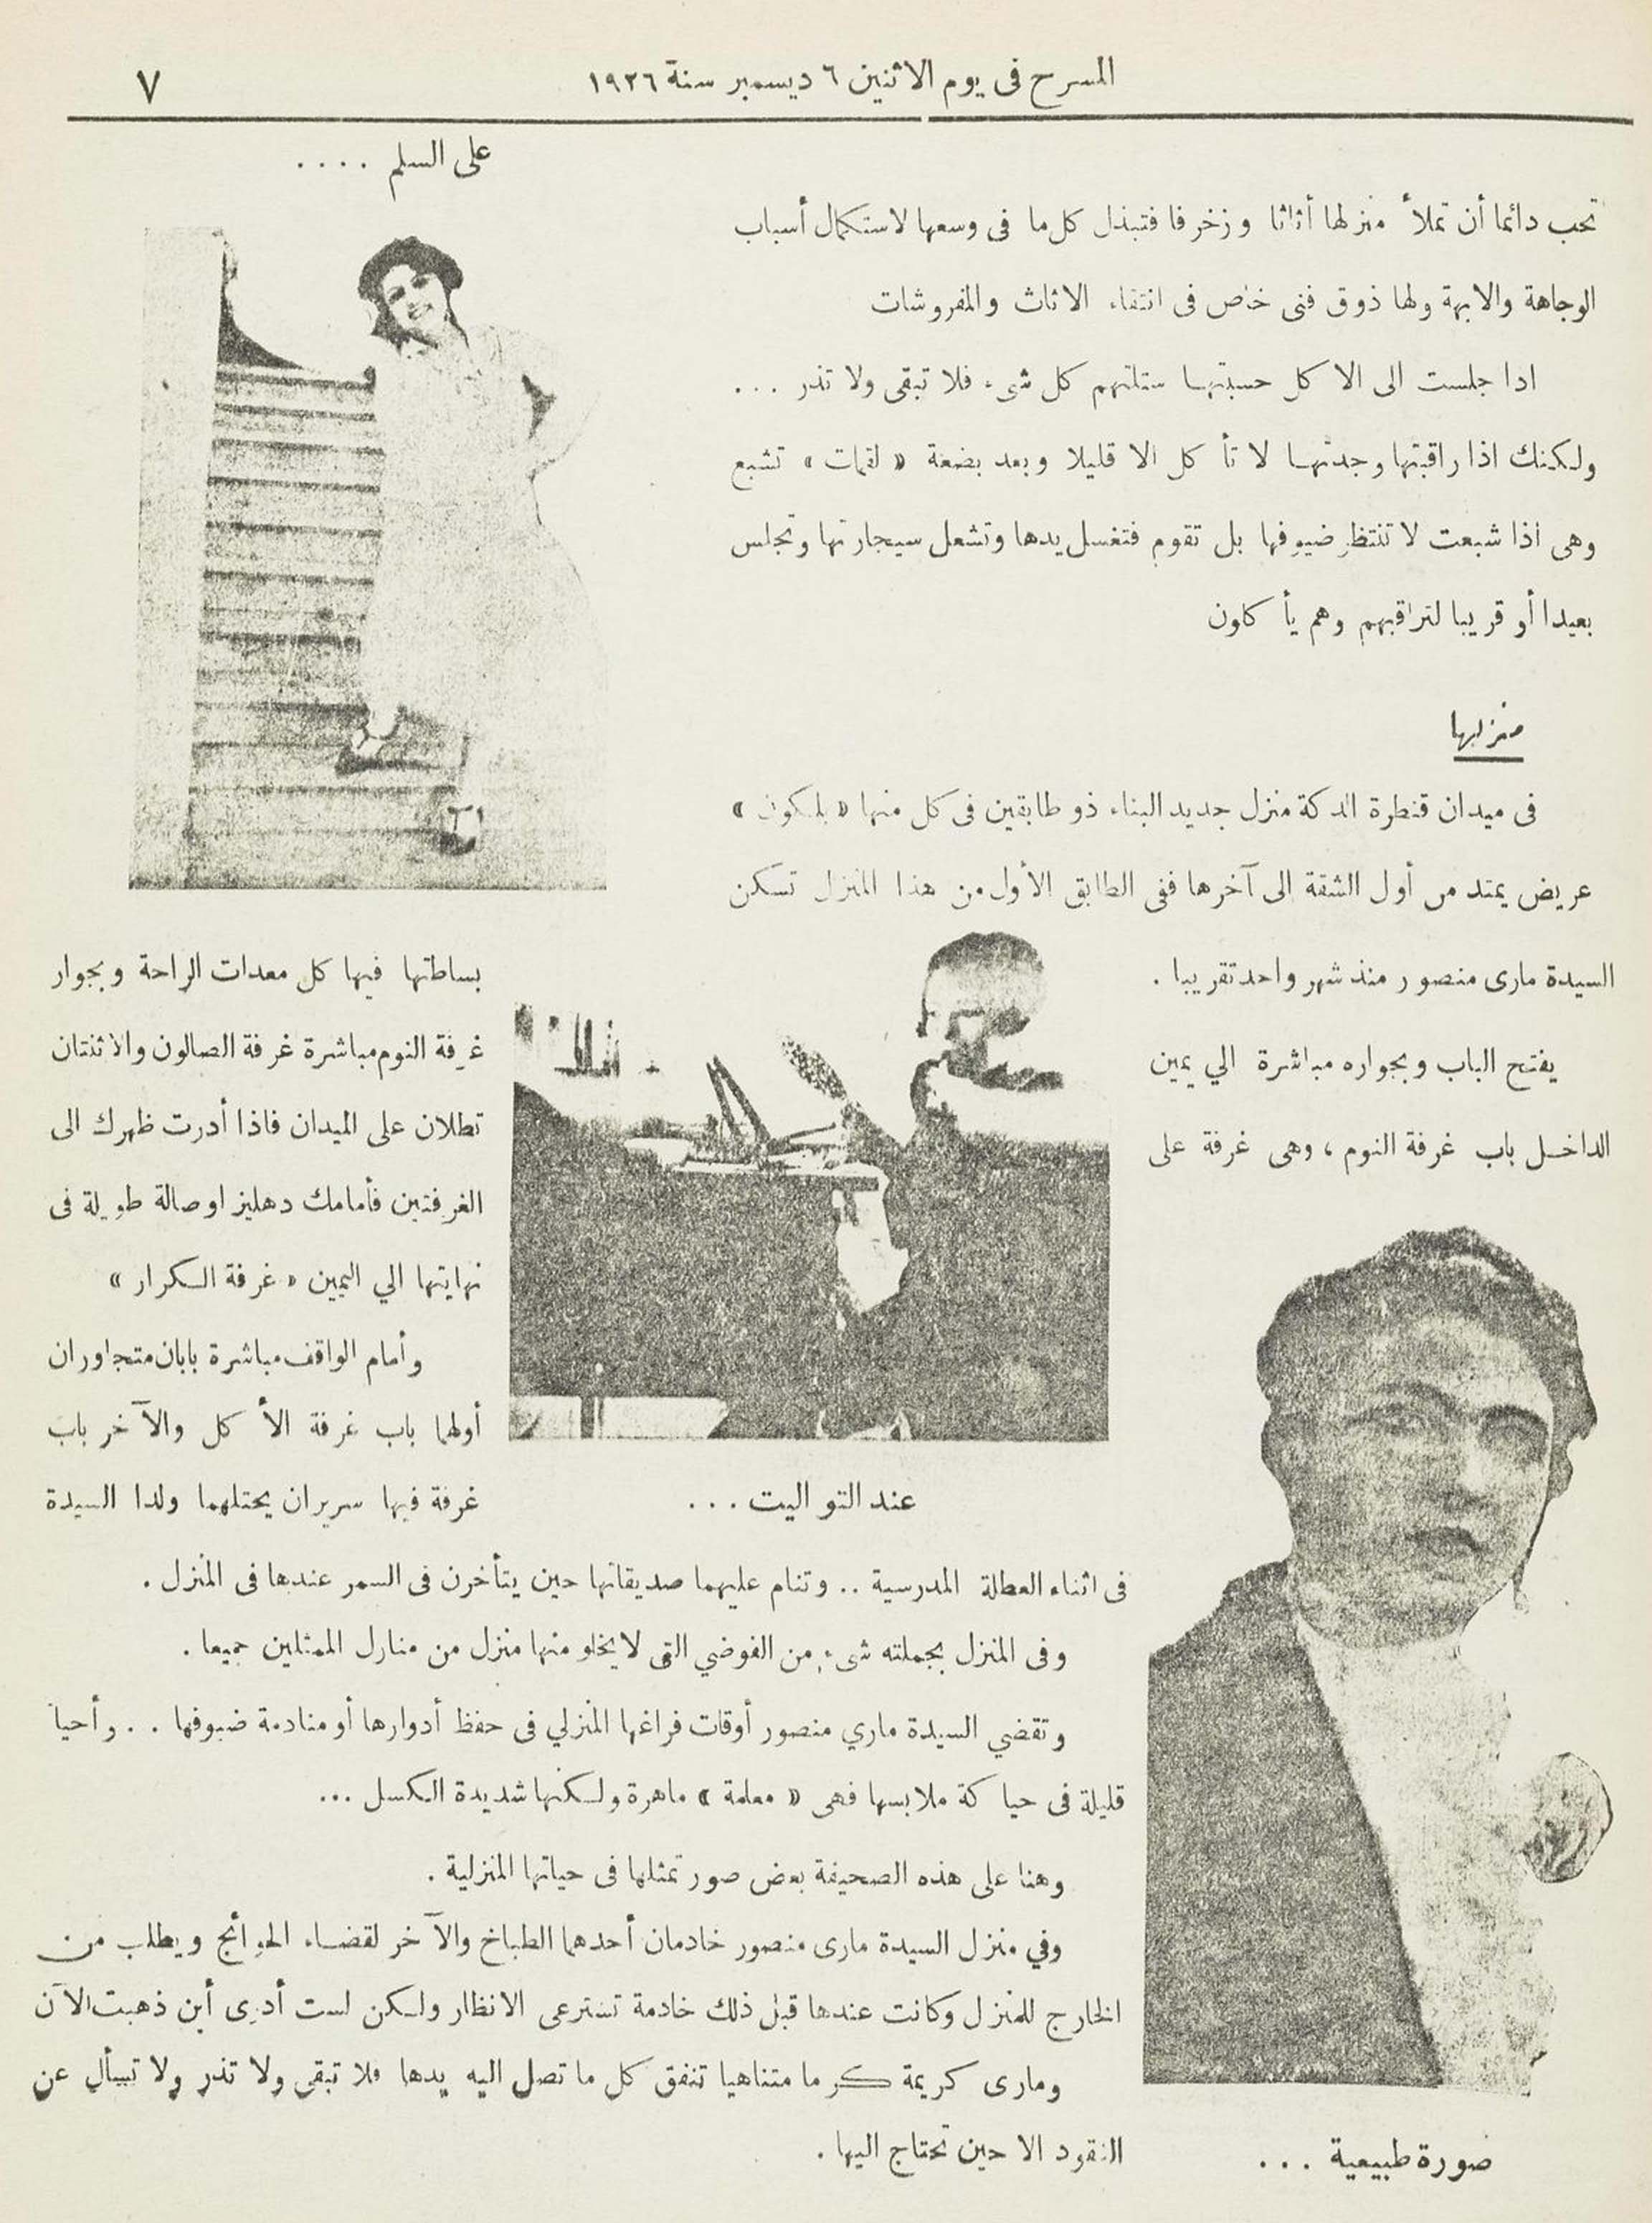 المسرح فى يوم الاثنين ٦ ديسمبر سنة ١٩٢٦
٧
على السلم ....
تحب دائما أن تملأ منزلها أثاثا وزخرفا فتبذل كل ما فى وسعها لاستكمال أسباب
الوجاهة والابهة ولها ذوق فنى خاص فى انتقاء الاثاث والمفروشات
اذا جلست الى الاكل حسبتها ستلتهم كل شىء فلا تبقى ولا تذر ...
ولكنك اذا راقبتها وجدتها لا تأكل الا قليلا وبعد بضعة « لقمات » تشبع
وهى اذا شبعت لا تنتظر ضيوفها بل تقوم فتغسل يدها وتشعل سيجارتها وتجلس
بعيدا أو قريبا لتراقبهم وهم يأكلون
منزلها
فى ميدان قنطرة الدكة منزل جديد البناء ذو طابقين فى كل منها « بلكون »
عريض يمتد من أول الشقة الى آخرها ففى الطابق الأول من هذا المنزل تسكن
السيدة مارى منصور منذ شهر واحد تقريبا .
يفتح الباب وبجواره مباشرة الي يمين
الداخل باب غرفة النوم ، وهى غرفة على
بساطتها فيها كل معدات الراحة وبجوار
غرفة النوم مباشرة غرفة الصالون والاثنتان
تطلان على الميدان فاذا أدرت ظهرك الى
الغرفتين فأمامك دهليز او صالة طويلة فى
نهايتها الي اليمين « غرفة الكرار »
وأمام الواقف مباشرة بابان متجاوران
أولهما باب غرفة الأكل والآخر باب
غرفة فيها سريران يحتلهما ولدا السيدة
عند التواليت ...
فى اثناء العطلة المدرسية .. وتنام عليهما صديقاتها حين يتأخرن فى السمر عندها فى المنزل .
وفى المنزل بجملته شىء من الفوضي التى لا يخلو منها منزل من منازل الممثلين جميعا .
وتقضي السيدة ماري منصور أوقات فراغها المنزلي فى حفظ أدوارها أو منادمة ضيوفها .. وأحيا
قليلة فى حياكة ملابسها فهى « معلمة » ماهرة ولكنها شديدة الكسل ...
وهنا على هذه الصحيفة بعض صور تمثلها فى حياتها المنزلية .
وفي منزل السيدة مارى منصور خادمان أحدهما الطباخ والآخر لقضاء الحوائج ويطلب من
الخارج للمنزل وكانت عندها قبل ذلك خادمة تسترعى الانظار ولكن لست أدرى أين ذهبت الآن
ومارى كريمة كرما متناهيا تنفق كل ما تصل اليه يدها فلا تبقى ولا تذر ولا تسأل عن
النقود الا حين تحتاج اليها .
صورة طبيعية ...